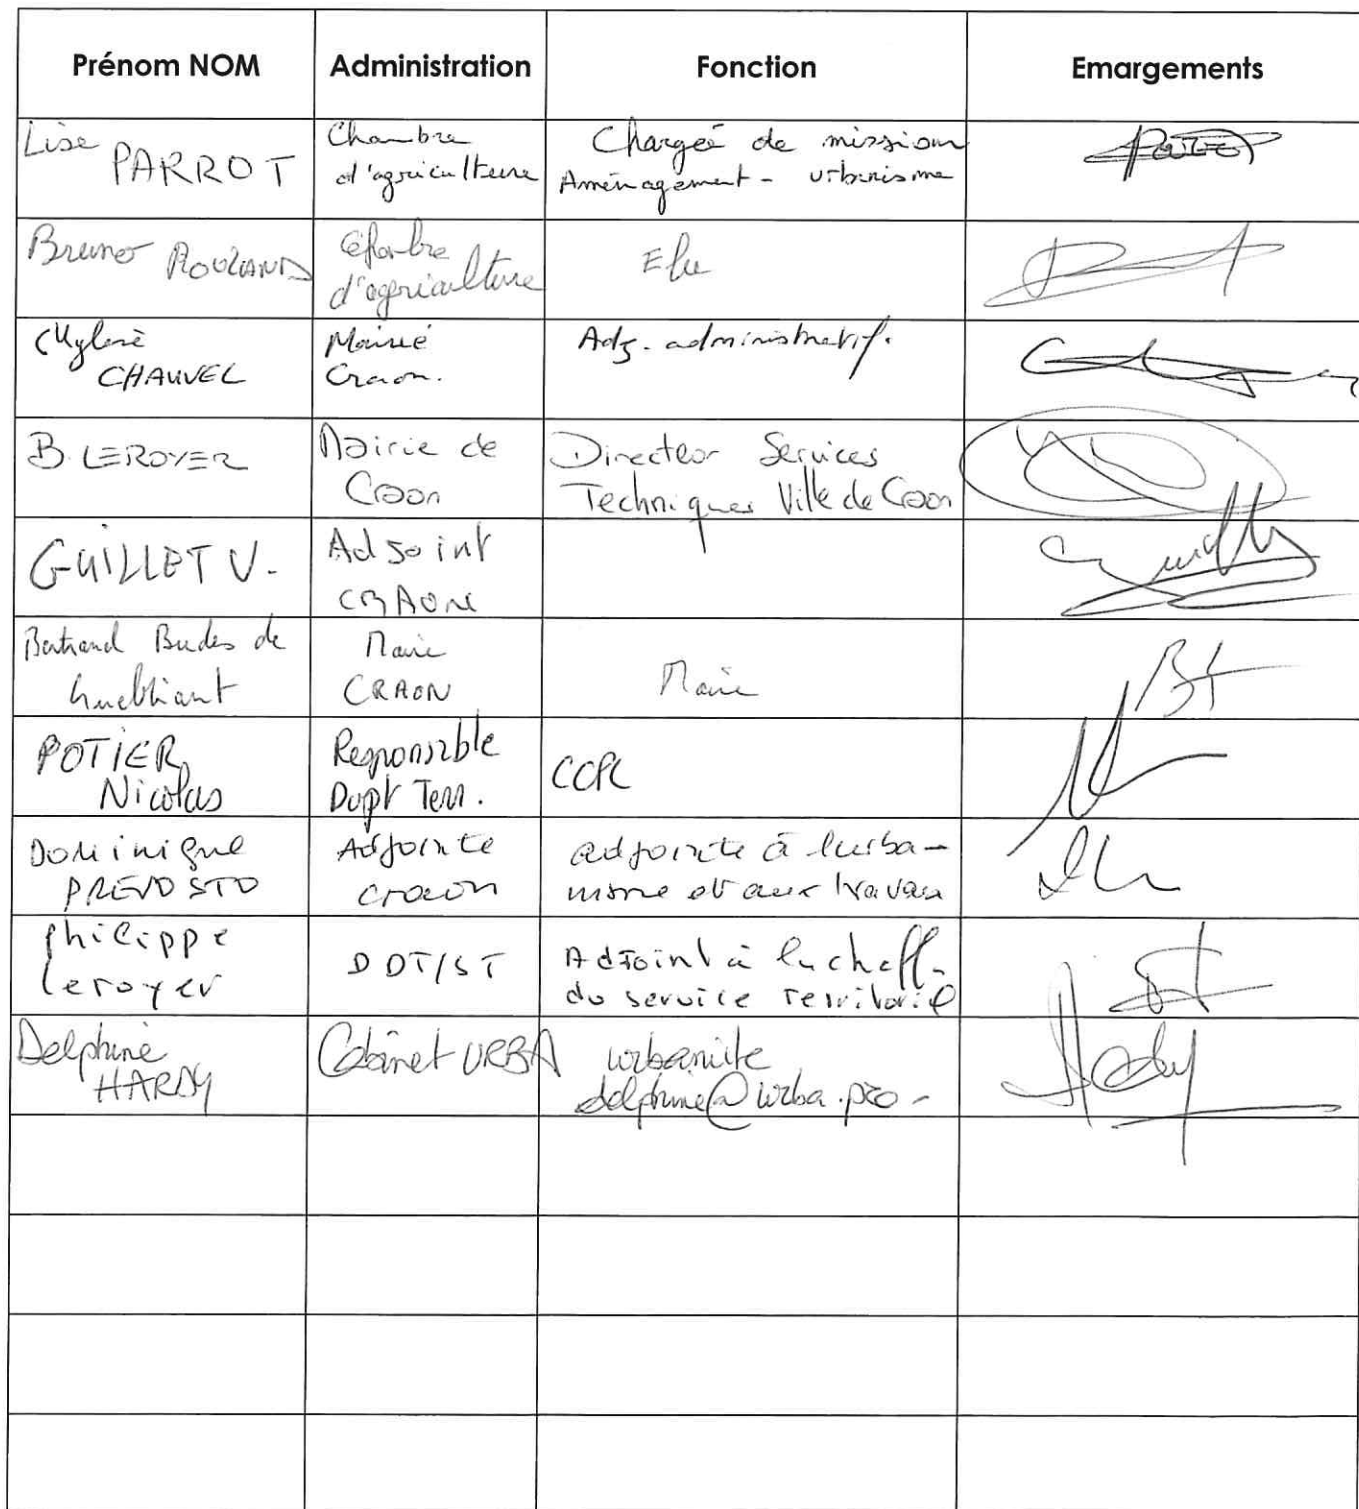 Prénom NOM Administration Fonction Emargements
Lise PARROT
Chambre
d'agriculture
Chargée de mission
Aménagement - urbanisme
Bruno
Chambre
d'agriculture
Elu
Mylène
CHAUVEL
Mairie
Craon.
Adj. administratif.
B. LEROYER
Mairie de
Craon
Directeur Services
Techniques Ville de Craon
GUILLET V.
Adjoint
CRAON
Bertrand Budes de
Guébriant
Maire
CRAON
Maire
POTIER
Nicolas
Responsable
Dvpt Terr.
CCPC
Dominique
PREVOSTO
Adjointe
craon
adjointe à l'urba-
nisme et aux travaux
Philippe
leroyer
DDT/ST
Adjoint à la cheff-
du service territorial
Delphine
HARDY
Cabinet URBA
urbaniste
delphine@urba.pro-